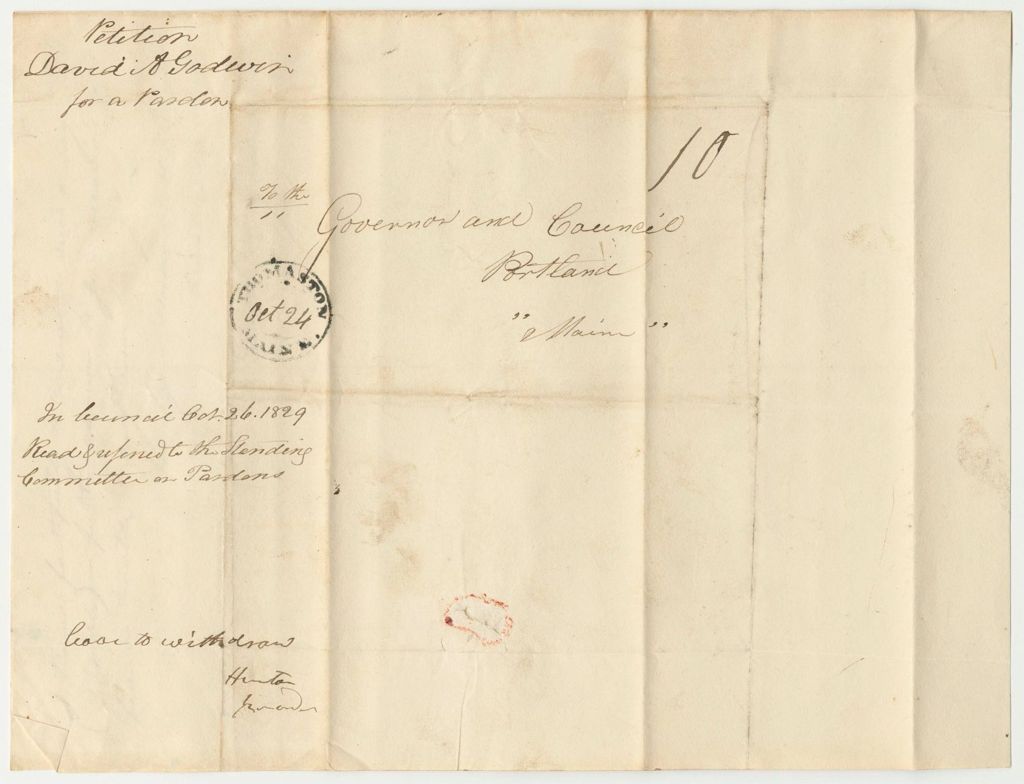 Petition
David A Godwin
for a Pardon
10
To the
"
Governor and Council
Portland
" Maine "
THOMASTON
Oct 24
MAINE.
In Council Oct. 26. 1829
Read & referred to the Standing
Committee on Pardons
leave to withdraw
Hunton